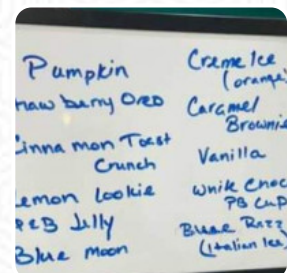 Pumpkin
rawberry Oreo
Cinnamon Toast
Crunch
Lemon Cookie
PB Jelly
Blue Moon
Creme Ice
(orange)
Caramel
Brownie
Vanilla
White Choc
PB Cup
Blue Razz
(Italian Ice)